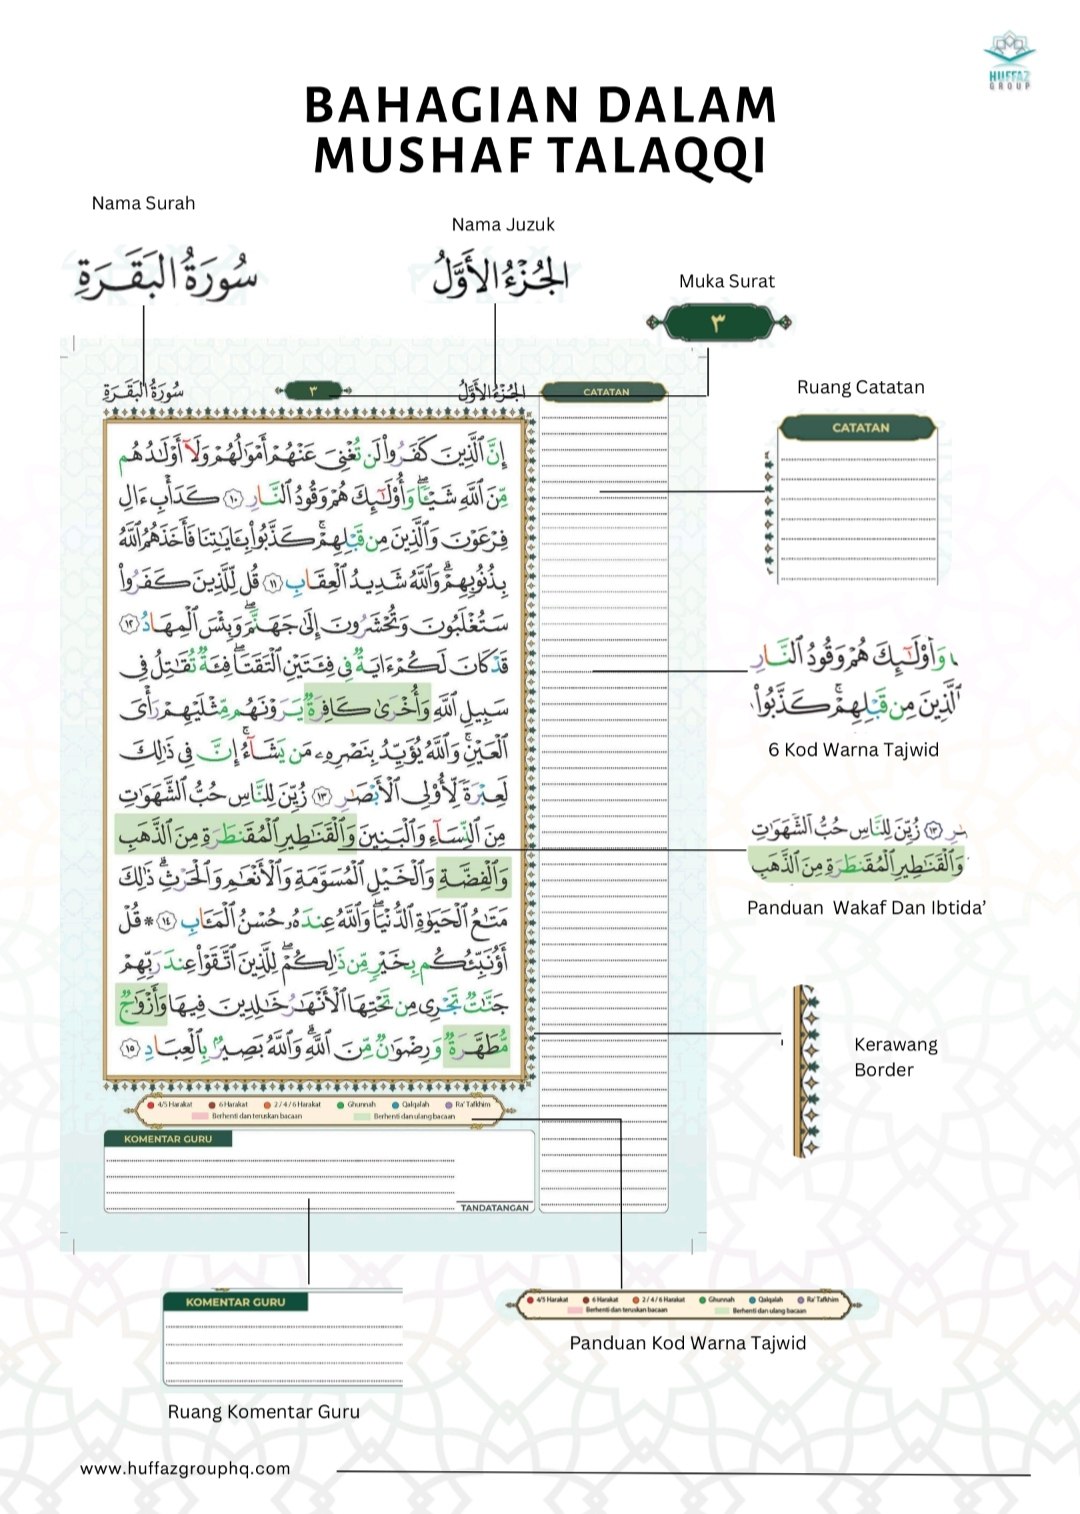 HUFFAZ
GROUP
BAHAGIAN DALAM
MUSHAF TALAQQI
Nama Surah
سُورَةُ الْبَقَرَةِ
Nama Juzuk
الجُزْءُ الأَوَّلُ
Muka Surat
٣
سُورَةُ الْبَقَرَةِ
٣
الجُزْءُ الأَوَّلُ
CATATAN
Ruang Catatan
CATATAN
إِنَّ الَّذِينَ كَفَرُوا لَن تُغْنِيَ عَنْهُمْ أَمْوَالُهُمْ وَلَا أَوْلَادُهُم
مِّنَ اللَّهِ شَيْئًا وَأُولَٰئِكَ هُمْ وَقُودُ النَّارِ ١٠ كَدَأْبِ ءَالِ
فِرْعَوْنَ وَالَّذِينَ مِن قَبْلِهِمْ كَذَّبُوا بِـَٔايَاتِنَا فَأَخَذَهُمُ اللَّهُ
بِذُنُوبِهِمْ وَاللَّهُ شَدِيدُ الْعِقَابِ ١١ قُل لِّلَّذِينَ كَفَرُوا
سَتُغْلَبُونَ وَتُحْشَرُونَ إِلَىٰ جَهَنَّمَ وَبِئْسَ الْمِهَادُ ١٢
قَدْ كَانَ لَكُمْ ءَايَةٌ فِي فِئَتَيْنِ الْتَقَتَا فِئَةٌ تُقَاتِلُ فِي
سَبِيلِ اللَّهِ وَأُخْرَىٰ كَافِرَةٌ يَرَوْنَهُم مِّثْلَيْهِمْ رَأْيَ
الْعَيْنِ وَاللَّهُ يُؤَيِّدُ بِنَصْرِهِ مَن يَشَاءُ إِنَّ فِي ذَٰلِكَ
لَعِبْرَةً لِّأُولِي الْأَبْصَارِ ١٣ زُيِّنَ لِلنَّاسِ حُبُّ الشَّهَوَاتِ
مِنَ النِّسَاءِ وَالْبَنِينَ وَالْقَنَاطِيرِ الْمُقَنطَرَةِ مِنَ الذَّهَبِ
وَالْفِضَّةِ وَالْخَيْلِ الْمُسَوَّمَةِ وَالْأَنْعَامِ وَالْحَرْثِ ذَٰلِكَ
مَتَاعُ الْحَيَوٰةِ الدُّنْيَا وَاللَّهُ عِندَهُ حُسْنُ الْمَـَٔابِ ١٤ * قُلْ
أَؤُنَبِّئُكُم بِخَيْرٍ مِّن ذَٰلِكُمْ لِلَّذِينَ اتَّقَوْا عِندَ رَبِّهِمْ
جَنَّاتٌ تَجْرِي مِن تَحْتِهَا الْأَنْهَارُ خَالِدِينَ فِيهَا وَأَزْوَاجٌ
مُّطَهَّرَةٌ وَرِضْوَانٌ مِّنَ اللَّهِ وَاللَّهُ بَصِيرٌ بِالْعِبَادِ ١٥
وَأُولَٰئِكَ هُمْ وَقُودُ النَّارِ
الَّذِينَ مِن قَبْلِهِمْ كَذَّبُوا
6 Kod Warna Tajwid
١٣ زُيِّنَ لِلنَّاسِ حُبُّ الشَّهَوَاتِ
وَالْقَنَاطِيرِ الْمُقَنطَرَةِ مِنَ الذَّهَبِ
Panduan Wakaf Dan Ibtida'
Kerawang
Border
4/5 Harakat 6 Harakat 2/4/6 Harakat Ghunnah Qalqalah Ra' Tafkhim
Berhenti dan teruskan bacaan Berhenti dan ulang bacaan
KOMENTAR GURU
TANDATANGAN
KOMENTAR GURU
Ruang Komentar Guru
4/5 Harakat 6 Harakat 2/4/6 Harakat Ghunnah Qalqalah Ra' Tafkhim
Berhenti dan teruskan bacaan Berhenti dan ulang bacaan
Panduan Kod Warna Tajwid
www.huffazgrouphq.com